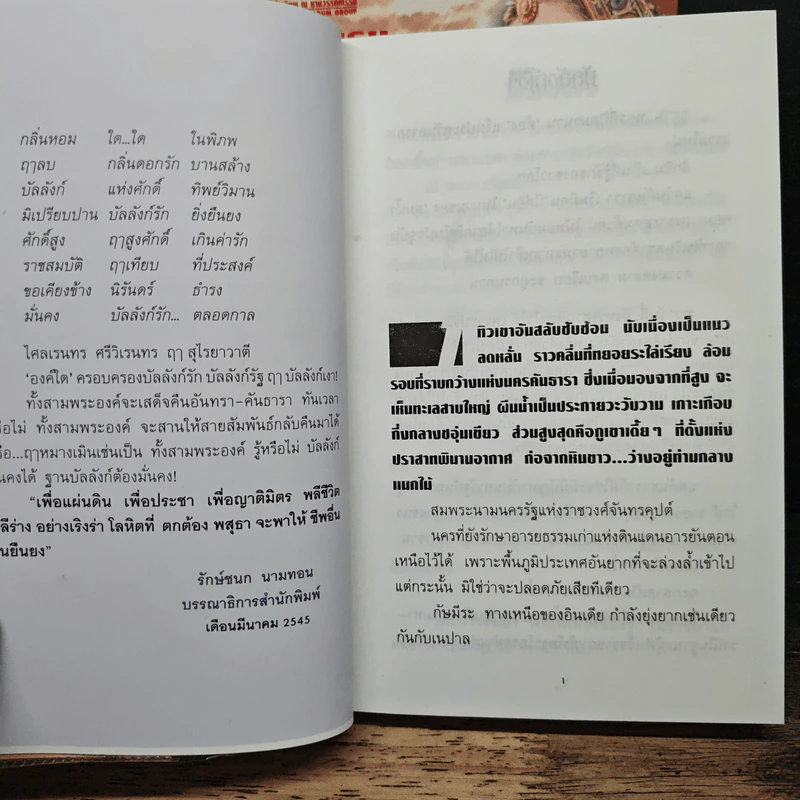 ณ บ้านวรรณกรรม
UM GROUP
กลิ่นหอม ใด...ใด ในพิภพ
ฤๅลบ กลิ่นดอกรัก บานสล้าง
บัลลังก์ แห่งศักดิ์ ทิพย์วิมาน
มิเปรียบปาน บัลลังก์รัก ยิ่งยืนยง
ศักดิ์สูง ฤๅสูงศักดิ์ เกินค่ารัก
ราชสมบัติ ฤๅเทียบ ที่ประสงค์
ขอเคียงข้าง นิรันดร์ ธำรง
มั่นคง บัลลังก์รัก... ตลอดกาล
ไศลเรนทร ศรีวิเรนทร ฤๅ สุไรยาวาตี
'องค์ใด' ครอบครองบัลลังก์รัก บัลลังก์รัฐ ฤๅ บัลลังก์เงา!
ทั้งสามพระองค์จะเสด็จคืนอันทรา-คันธารา ทันเวลา
รือไม่ ทั้งสามพระองค์ จะสานให้สายสัมพันธ์กลับคืนมาได้
รือ...ฤๅหมางเมินเช่นเป็น ทั้งสามพระองค์ รู้หรือไม่ บัลลังก์
นคงได้ ฐานบัลลังก์ต้องมั่นคง!
"เพื่อแผ่นดิน เพื่อประชา เพื่อญาติมิตร พลีชีวิต
ลีร่าง อย่างเริงร่า โลหิตที่ ตกต้อง พสุธา จะพาให้ ชีพอื่น
นยืนยง"
รักษ์ชนก นามทอน
บรรณาธิการสำนักพิมพ์
เดือนมีนาคม 2545
1
ทิวเขาอันสลับซับซ้อน นับเนื่องเป็นแนว
ลดหลั่น ราวคลื่นที่ทยอยระไล่เรียง ล้อม
รอบที่ราบกว้างแห่งนครคันธารา ซึ่งเมื่อมองจากที่สูง จะ
เห็นทะเลสาบใหญ่ ผืนน้ำเป็นประกายวะวับวาม เกาะเกือบ
กึ่งกลางชอุ่มเขียว ส่วนสูงสุดคือภูเขาเตี้ยๆ ที่ตั้งแห่ง
ปราสาทพิมานอากาศ ก่อจากหินขาว...ว่างอยู่ท่ามกลาง
แมกไม้
สมพระนามนครรัฐแห่งราชวงศ์จันทรคุปต์
นครที่ยังรักษาอารยธรรมเก่าแห่งดินแดนอารยันตอน
เหนือไว้ได้ เพราะพื้นภูมิประเทศอันยากที่จะล่วงล้ำเข้าไป
แต่กระนั้น มิใช่ว่าจะปลอดภัยเสียทีเดียว
กัษมีระ ทางเหนือของอินเดีย กำลังยุ่งยากเช่นเดียว
กันกับเนปาล
๑